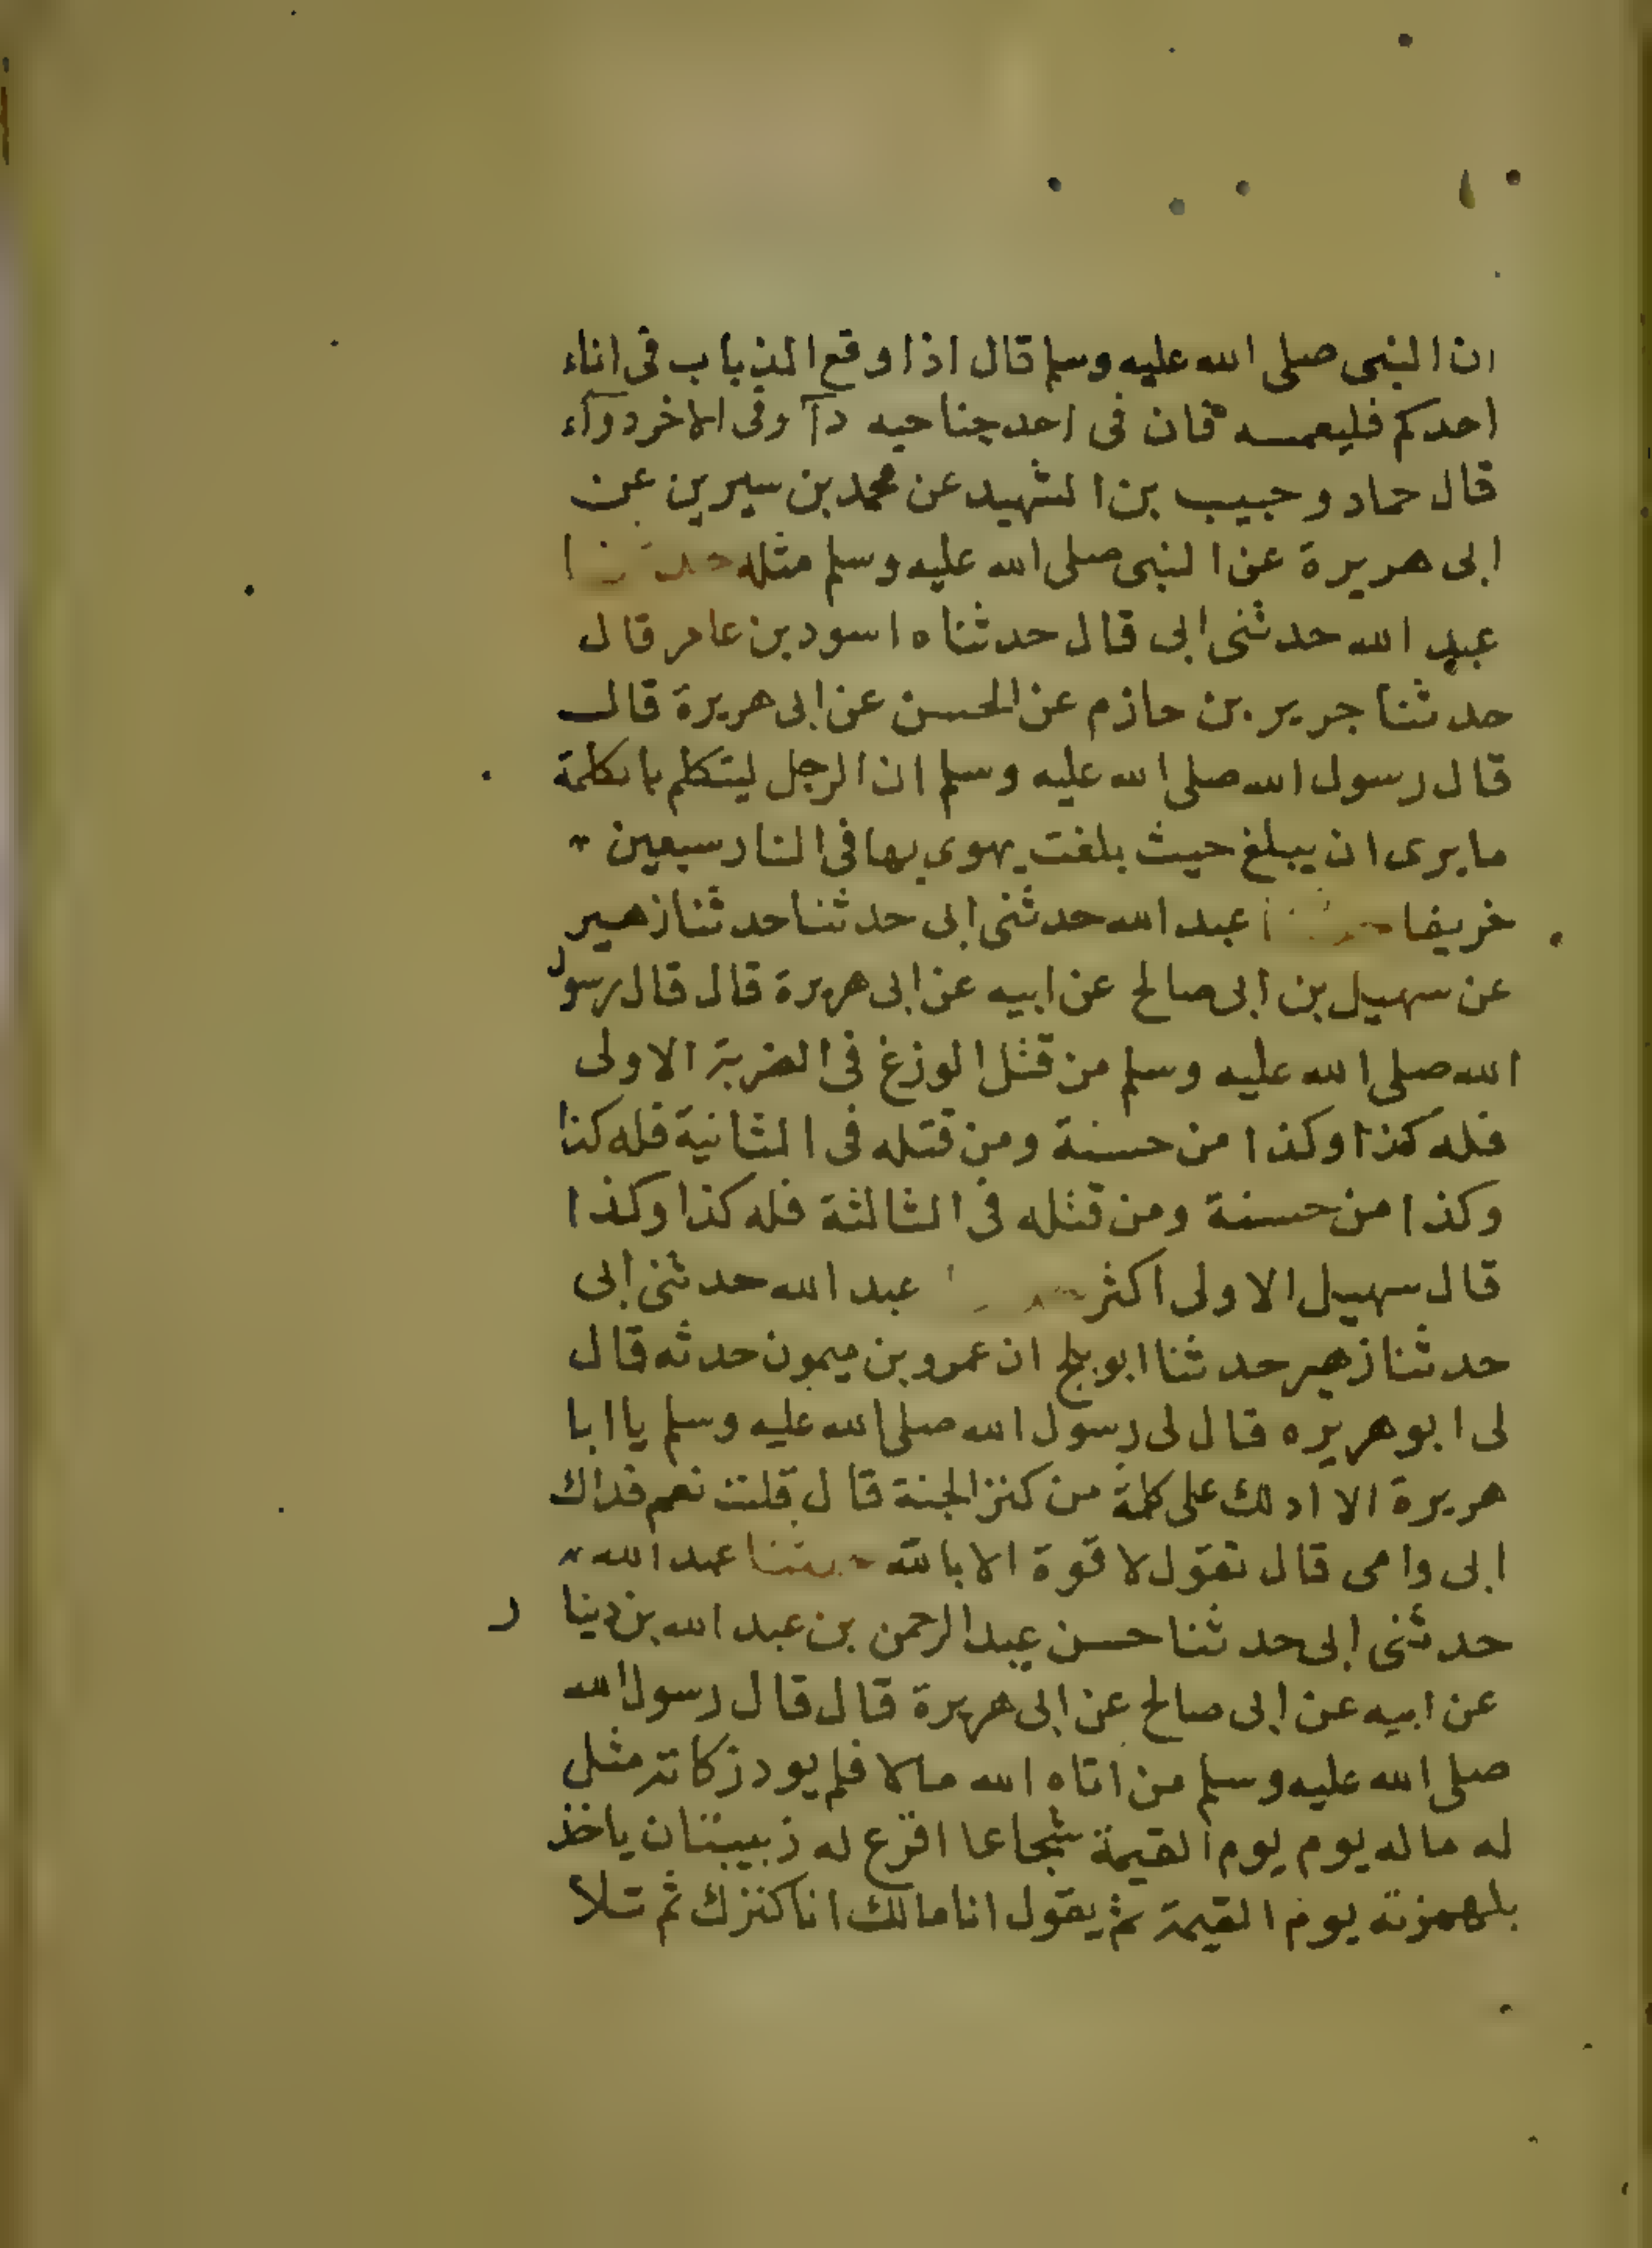 ان النبى صلى الله عليه وسلم قال اذا وقع الذباب فى اناء
احدكم فليغمسه فان فى احد جناحيه دآ وفى الاخر دوآء
قال حماد وحبيب بن الشهيد عن محمد بن سيرين عن
ابى هريرة عن النبى صلى الله عليه وسلم مثله حدثنا
عبد الله حدثنى ابى قال حدثناه اسود بن عامر قال
حدثنا جرير بن حازم عن الحسن عن ابى هريرة قال
قال رسول الله صلى الله عليه وسلم ان الرجل ليتكلم بالكلمة
ما يرى ان يبلغ حيث بلغت يهوى بها فى النار سبعين
خريفا عبد الله حدثنى ابى حدثنا حدثنا زهير
عن سهيل بن ابى صالح عن ابيه عن ابى هريرة قال قال رسول
الله صلى الله عليه وسلم من قتل الوزغ فى الضربة الاولى
فله كذا وكذا من حسنة ومن قتله فى الثانية فله كذا
وكذا من حسنة ومن قتله فى الثالثة فله كذا وكذا
قال سهيل الاولى اكثر عبد الله حدثنى ابى
حدثنا زهير حدثنا ابو بلج ان عمرو بن ميمون حدثه قال
لى ابو هريره قال لى رسول الله صلى الله عليه وسلم يا ابا
هريرة الا ادلك على كلمة من كنز الجنة قال قلت نعم فداك
ابى وامى قال تقول لا قوة الا بالله حدثنا عبد الله
حدثنى ابى حدثنا حسن عبد الرحمن بن عبد الله بن دينار
عن ابيه عن ابى صالح عن ابى هريرة قال قال رسول الله
صلى الله عليه وسلم من اتاه الله مالا فلم يود زكاته مثل
له ماله يوم يوم القيمة شجاعا اقرع له زبيبتان ياخذ
بلهمزته يوم القيمة ثم يقول انا مالك انا كنزك ثم تلا